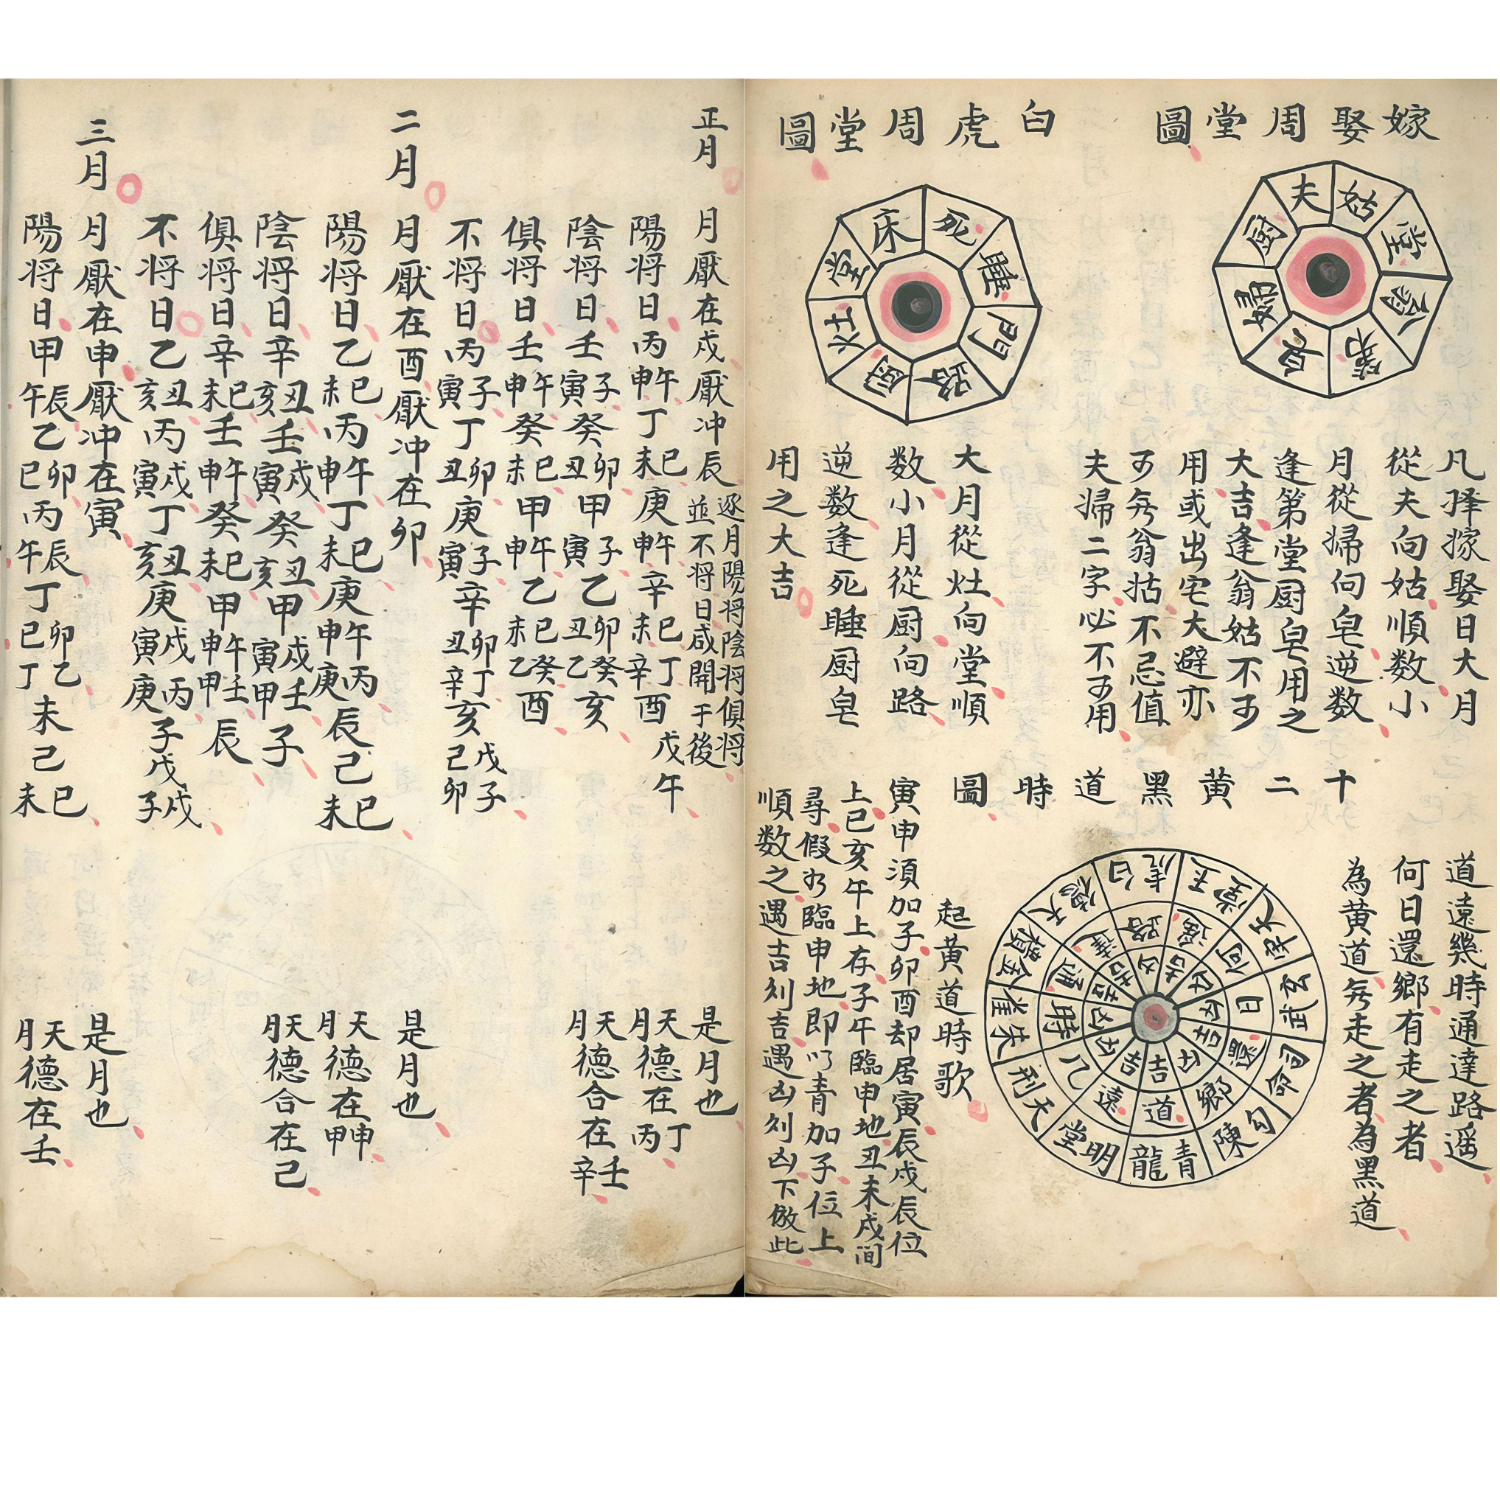 嫁娶周堂圖
夫姑堂翁第皂婦厨
凡择嫁娶日大月
從夫向姑順数小
月從婦向皂逆数
逢第堂厨皂用之
大吉逢翁姑不可
用或出宅大避亦
可无翁姑不忌值
夫婦二字必不可用
白虎周堂圖
死睡門路厨灶堂床
大月從灶向堂順
数小月從厨向路
逆数逢死睡厨皂
用之大吉
十二黄黑道時圖
道遠幾時通達路遥
何日還鄉有走之者
為黄道无走之者為黑道
青龍
明堂
天刑
朱雀
金櫃
天德
白虎
玉堂
天牢
玄武
司命
勾陳
道遠几時通達路遥何日還鄉
起黄道時歌
寅申須加子卯酉却居寅辰戌辰位
上巳亥午上存子午臨申地丑未戌间
尋假如臨申地即以青加子位上
順数之遇吉刘吉遇凶刘凶下倣此
正月
月厭在戌厭冲辰
逐月陽将陰将俱将
並不将日咸開于後
陽将日丙午申丁巳未庚午申辛巳未丁辛酉戊午
陰将日壬子寅癸卯丑甲子寅乙卯丑癸乙亥
俱将日壬午申癸巳未甲午申乙巳未癸乙酉
不将日丙子寅丁卯丑庚子寅辛卯丑丁辛亥戊子己卯
是月也
天月德在丁丙
天月德合在壬辛
二月
月厭在酉厭冲在卯
陽将日乙巳未丙午申丁巳未庚午申丙庚辰己巳未
陰将日辛丑亥壬戌寅癸丑亥甲戌寅壬甲子
俱将日辛巳未壬午申癸巳未甲午申壬甲辰
不将日乙丑亥丙戌寅丁丑亥庚戌寅丙庚子戊戌子
是月也
天月德在申甲
天月德合在己
三月
月厭在申厭冲在寅
陽将日甲辰午乙卯巳丙辰午丁卯巳乙丁未己巳未
是月也
天月德在壬